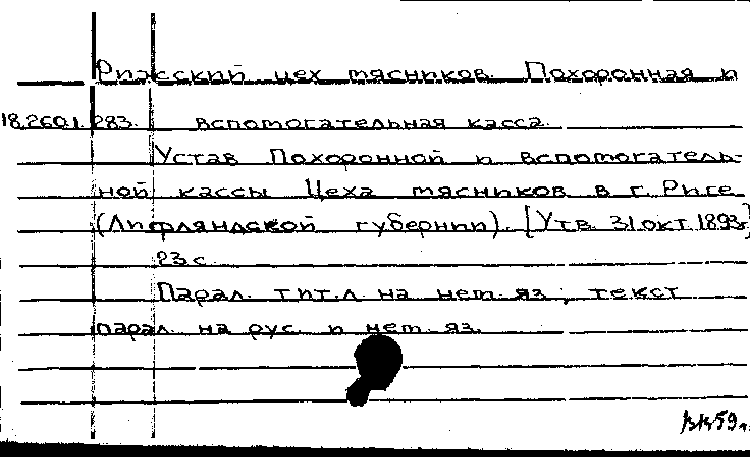 Рижский цех мясников. Похоронная и
18.260.1.283. вспомогательная касса.
Устав Похоронной и вспомогатель-
ной кассы Цеха мясников в г. Риге
(Лифляндской губернии). [Утв. 31 окт. 1893г.]
23 с.
Парал. тит. л. на нем. яз.; текст
парал. на рус. и нем. яз.